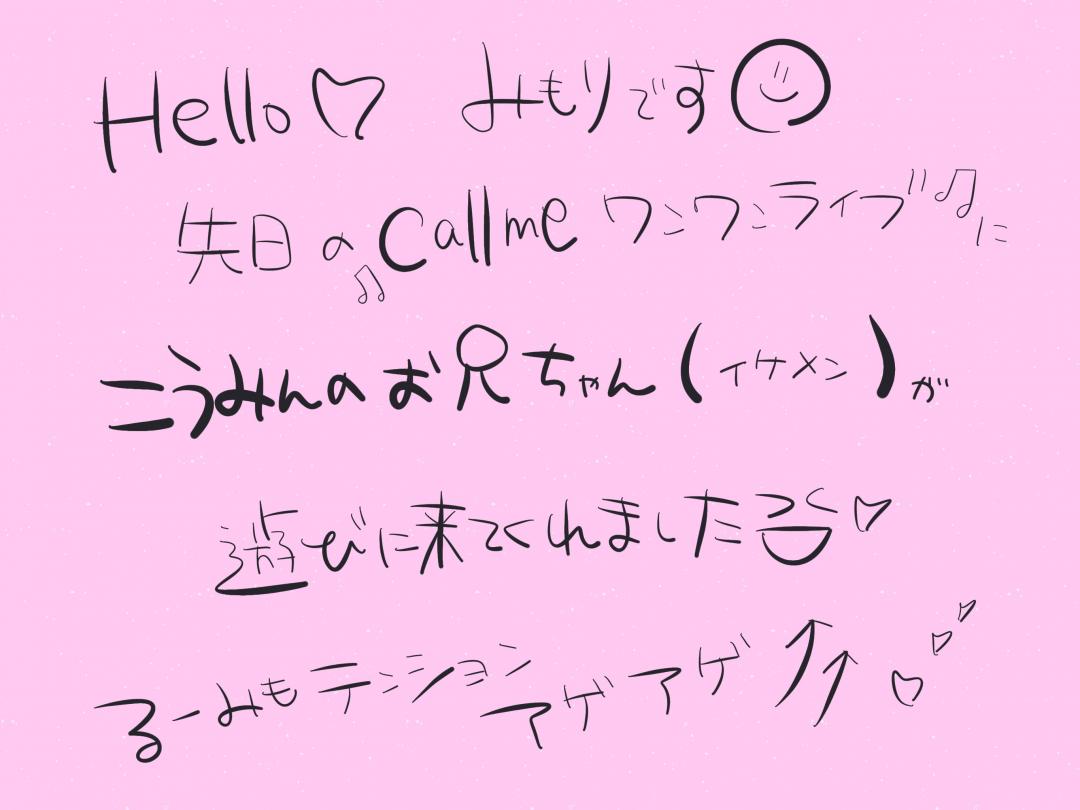 Hello♡ みもりです
先日の♫Callmeワンワンライブ♫に
こうみんのお兄ちゃん(イケメン)が
遊びに来てくれました♡
るーみもテンションアゲアゲ↑↑♡♡♡